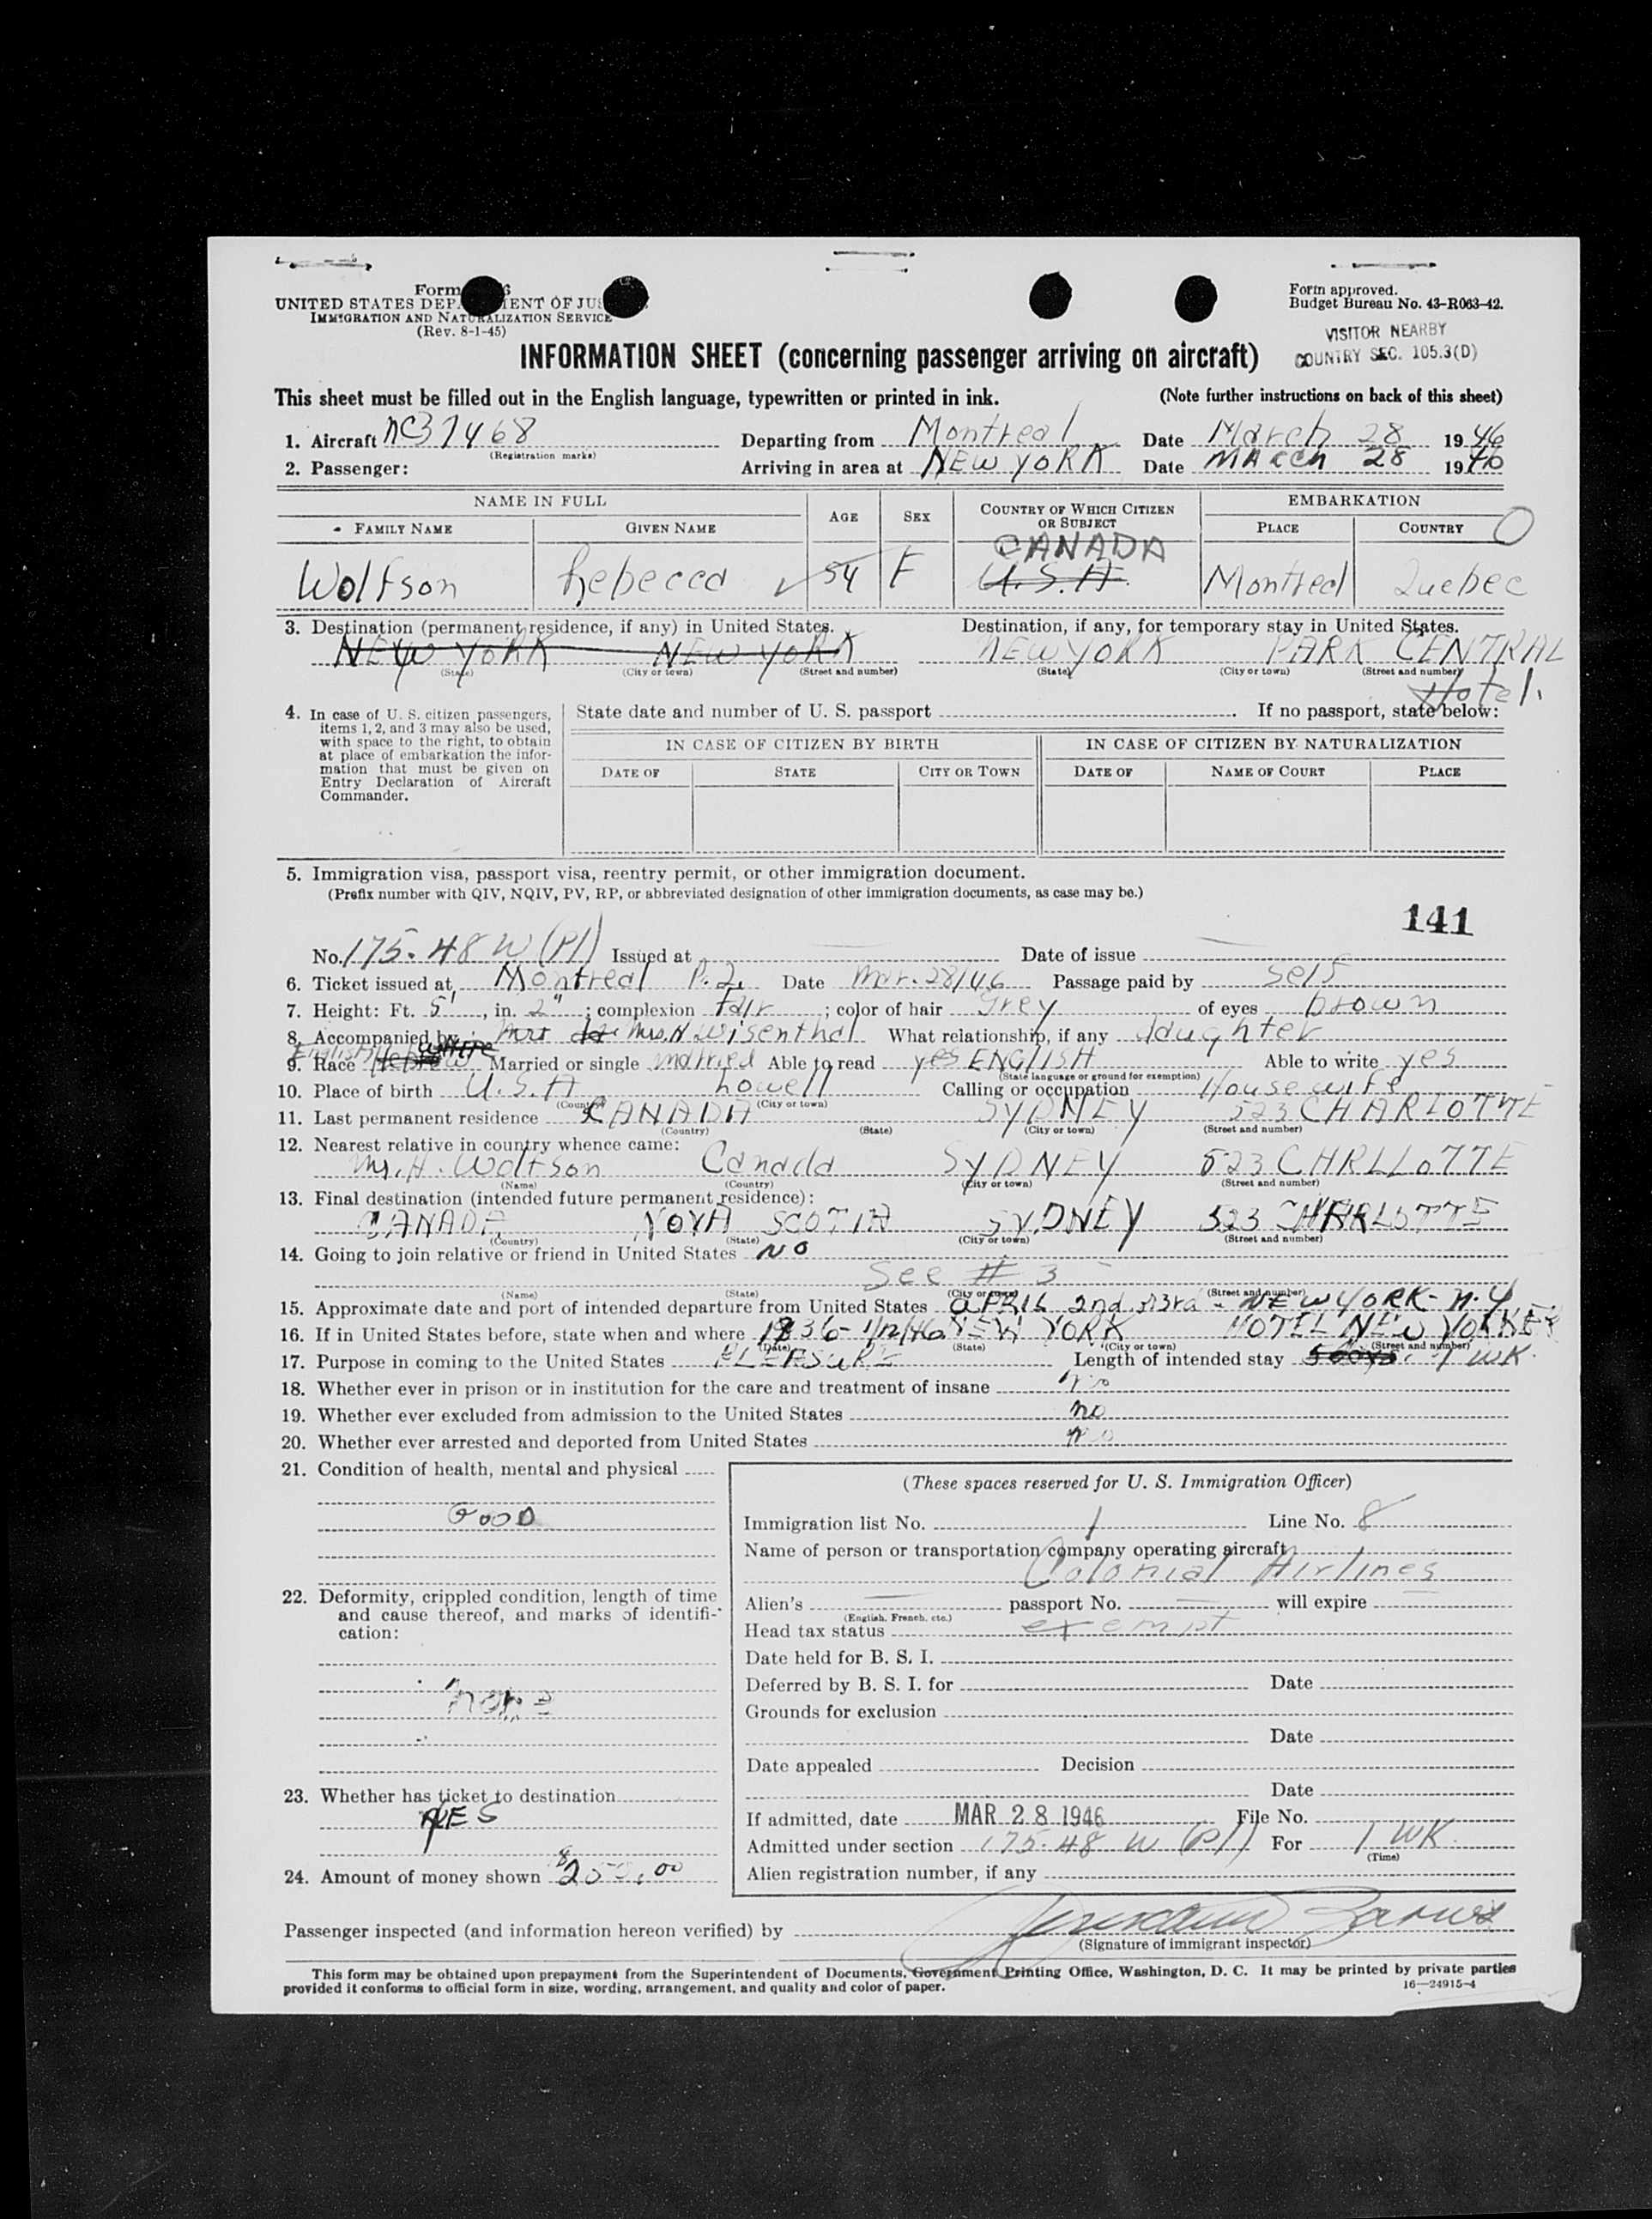 Form
UNITED STATES DEP ENT OF JUS
IMMIGRATION AND NATURALIZATION SERVICE
(Rev. 8-1-45)
Form approved.
Budget Bureau No. 43-R063-42.
VISITOR NEARBY
COUNTRY SEC. 105.3(D)
INFORMATION SHEET (concerning passenger arriving on aircraft)
This sheet must be filled out in the English language, typewritten or printed in ink. (Note further instructions on back of this sheet)
1. Aircraft NC37468 Departing from Montreal Date March 28 1946
(Registration marks)
2. Passenger: Arriving in area at NEW YORK Date MARCH 28 1946
NAME IN FULL AGE SEX COUNTRY OF WHICH CITIZEN OR SUBJECT EMBARKATION
FAMILY NAME GIVEN NAME PLACE COUNTRY
CANADA
Wolfson Rebecca 54 F U.S.A. Montreal Quebec
3. Destination (permanent residence, if any) in United States. Destination, if any, for temporary stay in United States.
NEW YORK NEW YORK NEW YORK PARK CENTRAL
(State) (City or town) (Street and number) (State) (City or town) (Street and number)
Hotel.
4. In case of U. S. citizen passengers, items 1, 2, and 3 may also be used, with space to the right, to obtain at place of embarkation the information that must be given on Entry Declaration of Aircraft Commander.
State date and number of U. S. passport . If no passport, state below:
IN CASE OF CITIZEN BY BIRTH IN CASE OF CITIZEN BY NATURALIZATION
DATE OF STATE CITY OR TOWN DATE OF NAME OF COURT PLACE
5. Immigration visa, passport visa, reentry permit, or other immigration document.
(Prefix number with QIV, NQIV, PV, RP, or abbreviated designation of other immigration documents, as case may be.)
141
No. 175.48 W (P1) Issued at Date of issue
6. Ticket issued at Montreal P.2. Date Mar. 28/46 Passage paid by self
7. Height: Ft. 5', in. 2"; complexion fair; color of hair Grey of eyes brown
8. Accompanied by: Mrs. H. Wisenthal What relationship, if any daughter
9. Race English Hebrew white Married or single married Able to read yes ENGLISH Able to write yes
(State language or ground for exemption)
10. Place of birth U.S.A Lowell Calling or occupation Housewife
(Country) (City or town)
11. Last permanent residence CANADA SYDNEY 523 CHARLOTTE
(Country) (State) (City or town) (Street and number)
12. Nearest relative in country whence came:
Mr. H. Wolfson Canada SYDNEY 523 CHRLLOTTE
(Name) (Country) (City or town) (Street and number)
13. Final destination (intended future permanent residence):
CANADA NOVA SCOTIA SYDNEY 523 CHARLOTTE
(Country) (State) (City or town) (Street and number)
14. Going to join relative or friend in United States NO
See # 3
(Name) (State) (City or town) (Street and number)
15. Approximate date and port of intended departure from United States APRIL 2nd or 3rd - NEW YORK - N.Y.
16. If in United States before, state when and where 1936 - 1/12/46 NEW YORK HOTEL NEW YORKER
(Date) (State) (City or town) (Street and number)
17. Purpose in coming to the United States PLEASURE Length of intended stay 1 WK.
18. Whether ever in prison or in institution for the care and treatment of insane no
19. Whether ever excluded from admission to the United States no
20. Whether ever arrested and deported from United States no
21. Condition of health, mental and physical
GOOD
22. Deformity, crippled condition, length of time and cause thereof, and marks of identification:
none
23. Whether has ticket to destination
YES
24. Amount of money shown $250.00
(These spaces reserved for U. S. Immigration Officer)
Immigration list No. 1 Line No. 8
Name of person or transportation company operating aircraft
Colonial Airlines
Alien's passport No. will expire
(English, French, etc.)
Head tax status exempt
Date held for B. S. I.
Deferred by B. S. I. for Date
Grounds for exclusion
Date
Date appealed Decision
Date
If admitted, date MAR 28 1946 File No.
Admitted under section 175.48 W (P1) For 1 WK.
(Time)
Alien registration number, if any
Passenger inspected (and information hereon verified) by
(Signature of immigrant inspector)
This form may be obtained upon prepayment from the Superintendent of Documents, Government Printing Office, Washington, D. C. It may be printed by private parties
provided it conforms to official form in size, wording, arrangement, and quality and color of paper. 16—24915-4